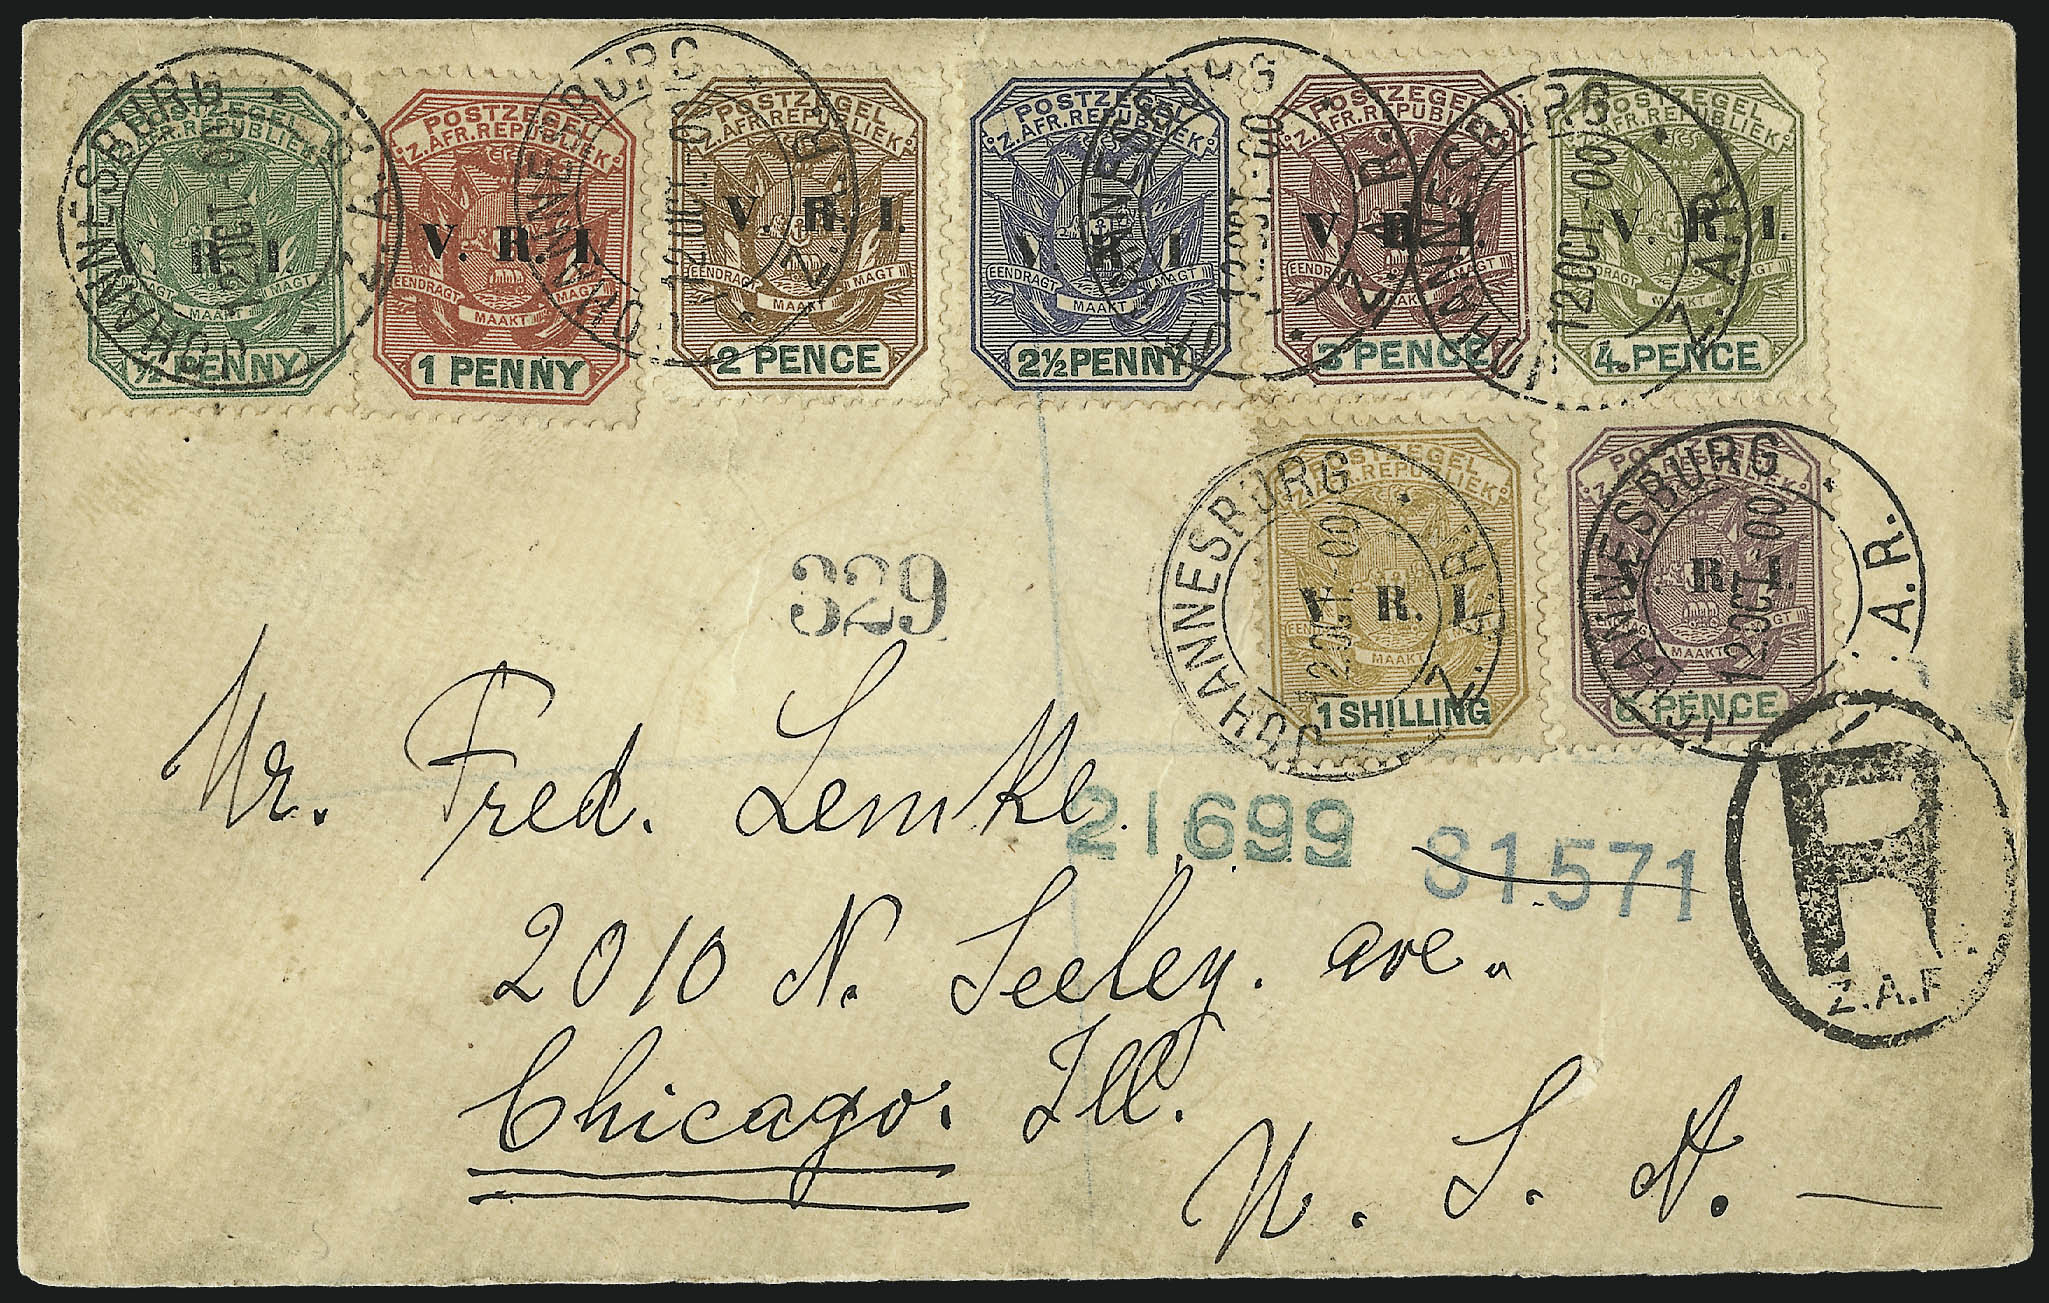 POSTZEGEL
Z. AFR. REPUBLIEK
V. R. I.
EENDRAGT MAAKT MAGT
½ PENNY
POSTZEGEL
Z. AFR. REPUBLIEK
V. R. I.
EENDRAGT MAAKT MAGT
1 PENNY
POSTZEGEL
Z. AFR. REPUBLIEK
V. R. I.
EENDRAGT MAAKT MAGT
2 PENCE
POSTZEGEL
Z. AFR. REPUBLIEK
V. R. I.
EENDRAGT MAAKT MAGT
2½ PENNY
POSTZEGEL
Z. AFR. REPUBLIEK
V. R. I.
EENDRAGT MAAKT MAGT
3 PENCE
POSTZEGEL
Z. AFR. REPUBLIEK
V. R. I.
EENDRAGT MAAKT MAGT
4 PENCE
JOHANNESBURG
Z.A.R.
12 OCT-00
JOHANNESBURG
Z.A.R.
12 OCT-00
JOHANNESBURG
Z.A.R.
12 OCT-00
JOHANNESBURG
Z.A.R.
12 OCT-00
POSTZEGEL
Z. AFR. REPUBLIEK
V. R. I.
EENDRAGT MAAKT MAGT
1 SHILLING
JOHANNESBURG
Z.A.R.
12 OCT-00
POSTZEGEL
R. I.
EENDRAGT MAAKT MAGT
6 PENCE
JOHANNESBURG
Z.A.R.
12 OCT-00
329
Mr. Fred. Lemke.
21699 31571
R
Z.A.R.
2010 N. Seeley. ave.
Chicago. Ill.
U. S. A.